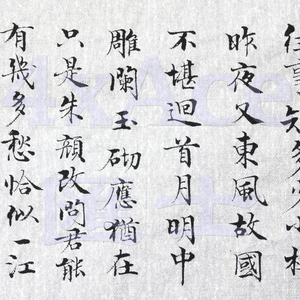 往事知多少小樓
昨夜又東風故國
不堪迴首月明中
雕闌玉砌應猶在
只是朱顏改問君能
有幾多愁恰似一江